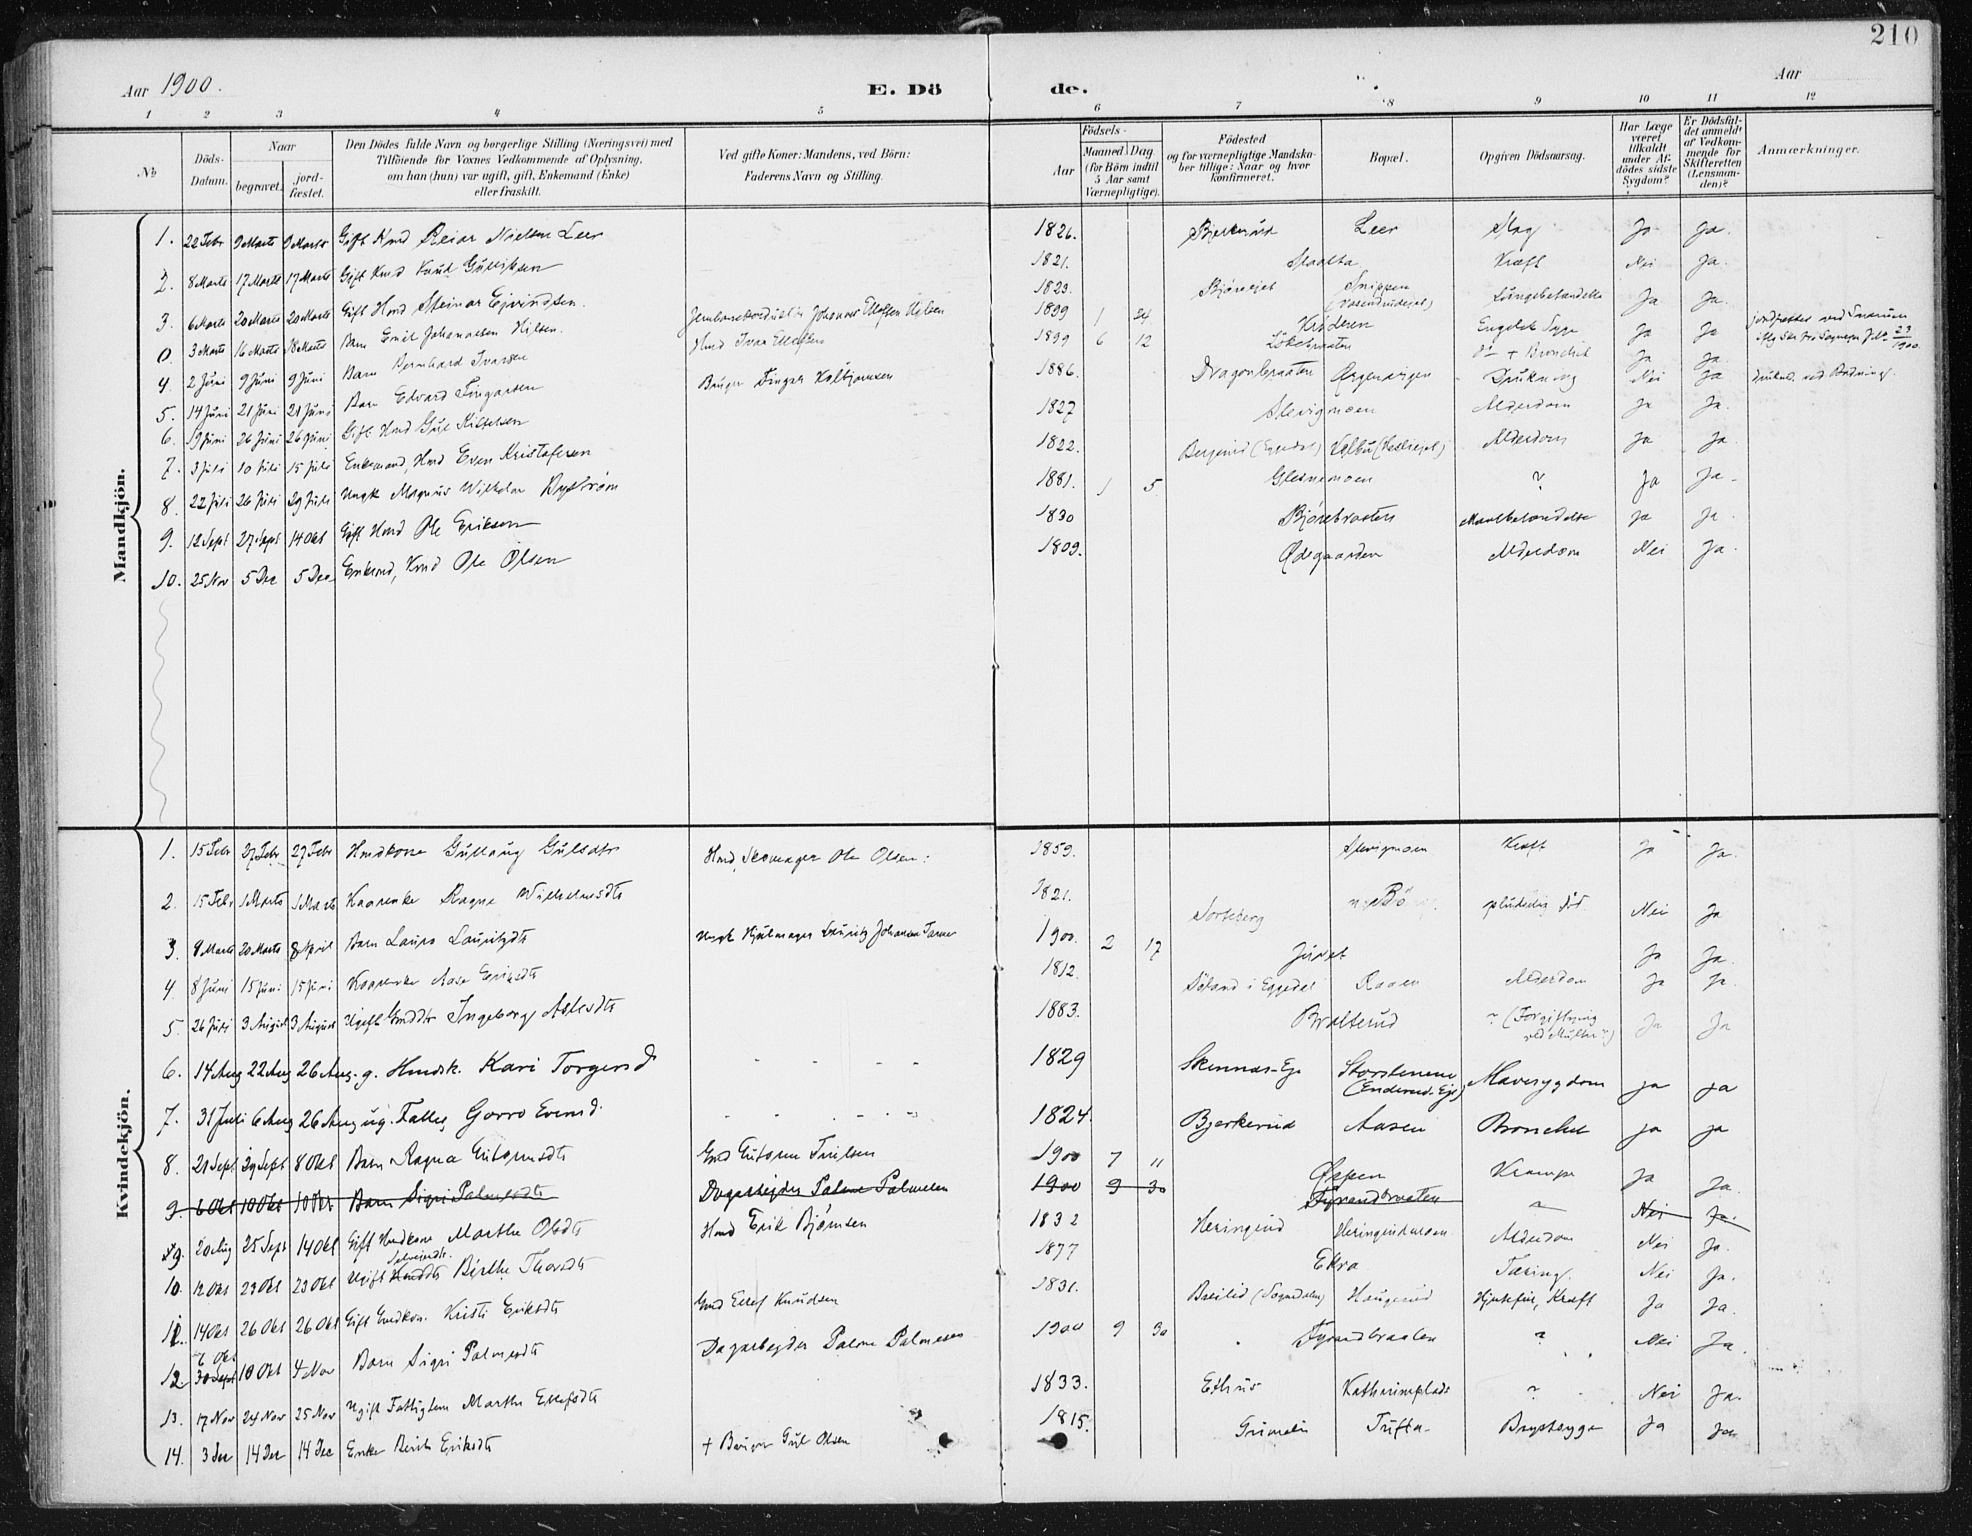 210
Aar 1900.
E. Dö
de.
Aar
1 2 3 4 5 6 7 8 9 10 11 12
No
Döds-Datum.
Naar
begravet.
jord-fæstet.
Den Dödes fulde Navn og borgerlige Stilling (Næringsvei) med
Tilföiende for Voxnes Vedkommende af Oplysning,
om han (hun) var ugift, gift, Enkemand (Enke)
eller fraskilt.
Ved gifte Koner: Mandens, ved Börn:
Faderens Navn og Stilling.
Födsels-
Aar
Maaned Dag
(for Börn indtil
5 Aar samt
Værnepligtige).
Födested
og for værnepligtige Mandska-
ber tillige: Naar og hvor
konfirmeret.
Bopæl.
Opgiven Dödsaarsag.
Har Læge
været
tilkaldt
under Af-
dödes sidste
Sygdom?
Er Dödsfal-
det anmeldt
af Vedkom-
mende for
Skifteretten
(Lensman-
den)?
Anmærkninger.
Mandkjön.
1. 22 Febr 9 Marts 9 Marts Gift Hmd Reiar Nielsen Leer 1826. Bjerkerud Leer Slag Ja Ja.
2. 8 Marts 17 Marts 17 Marts Gift Kmd Knud Gulliksen 1821. Kræft Nei Ja.
3. 6 Marts 20 Marts 20 Marts Gift Hmd Steinar Ejvindsen. 1823. Snippen Lungebetændelse Ja Ja.
0 3 Marts 16 Marts 18 Marts Barn Emil Johannesen 1899 1 24 Krøderen Engelsk Syge Ja Ja
4. 2 Juni 9 Juni 9 Juni Barn Bernhard Ivarsen Hmd Ivar 1899 6 12 + Bronchit Ja Ja.
5. 14 Juni 21 Juni 21 Juni Barn Edvard Tingarsen Bruger Fingar Kolbjørnsen 1886. Dragonbraaten Drukning Nei Ja
6. 19 Juni 26 Juni 26 Juni Gift Hmd Gul Kittelsen 1827 Slevigmoen Alderdom Ja Ja.
7. 3 Juli 10 Juli 15 Juli Enkemand, Hmd Even Kristofersen 1822. Alderdom Ja Ja.
8. 22 Juli 26 Juli 29 Juli Ungk Magnus Wilhelm Nystrøm 1881. 1 5 Glesnemoen ? Ja Ja.
9. 12 Sept 27 Sept 14 Okt Gift Hmd Ole Eriksen 1830 Bjørebraaten Ja Ja.
10. 25 Nov 5 Dec 5 Dec Enkemd, Kmd Ole Olsen 1809. Ødegaarden Alderdom Nei Ja.
Kvindekjön.
1. 15 Febr 27 Febr 27 Febr Hmdkone Gullaug Gulsdtr Hmd, Skomager Ole Olsen: 1859. Slevigmoen Kræft Ja Ja.
2. 15 Febr 1 Marts 1 Marts Kaarenke Ragne Wilhelmsdtr 1821. Sorteberg pludselig død. Nei Ja
3. 8 Marts 20 Marts 8 April Barn Laura Lauritzdtr Ungk Hjulmager Lauritz Johansen 1900. 2 17 Juvet Ja Ja.
4. 8 Juni 15 Juni 15 Juni Kaarenke Aase Eriksdtr 1812. i Eggedal Raaen Alderdom Ja Ja.
5. 26 Juli 3 August 3 August Ugift Gmddtr Ingeborg Aslesdtr 1883. Bratterud ? (Forgiftning ved Multer?) Ja Ja
6. 14 Aug 22 Aug 26 Aug. g. Hmdsk. Kari Torgersd - - - - 1829 Skinnes-Eje Storstenene (Enderud-Eje) Mavesygdom Ja Ja
7. 31 Juli 6 Aug 26 Aug ug. Fattig Gorro Evensd. - - - - 1824. Bjerkerud Aasen Bronchit Ja Ja
8. 21 Sept 29 Sept 8 Okt Barn Ragna Gutormsdtr Gmd Gutorm Trulsen 1900 7 11 Øppen Krampe Ja Ja.
9. 6 Okt 10 Okt 10 Okt Barn Sigri Palmesdtr Dagarbejder Palme Palmesen 1900 9 30 Fyrandbraaten ~ Nei Ja.
9. 20 Aug 25 Sept 14 Okt Gift Hmdkone Marthe Olsdtr Hmd Erik Bjørnsen 1832 Heringerud Alderdom Nei Ja.
10. 12 Okt 23 Okt 23 Okt Ugift Birthe Thorsdtr 1877 Ekra Tæring. Nei Ja.
11. 14 Okt 26 Okt 26 Okt Gift Gmdkon. Kristi Eriksdtr Gmd Ellef Knudsen 1831. Breilid (Sognedalen) Haugerud Hjertefeil, Kræft Ja Ja.
6 Okt
12. 30 Sept 10 Okt 4 Nov Barn Sigri Palmesdtr Dagarbejder Palme Palmesen 1900 9 30 Fyrandbraaten ? Nei Ja.
13. 17 Nov 24 Nov 25 Nov Ugift Fattiglem Marthe Ellefsdtr 1833. Katharinplads ? Nei Ja.
14. 3 Dec 14 Dec 14 Dec Enke Berit Eriksdtr + Bruger Gul Olsen 1815. Grimelid Tufta Brystsyge Ja Ja